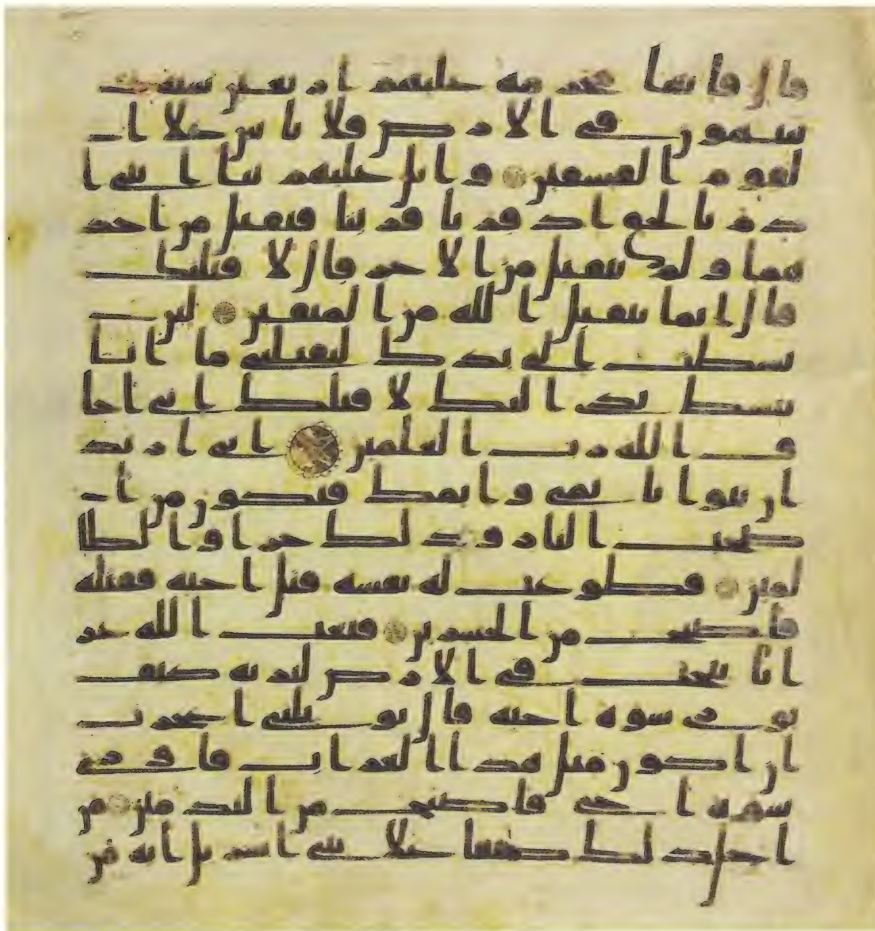 قال فانها محرمة عليهم اربعين سنة
يتيهون في الارض فلا تاس علا ا
لقوم الفسقين واتل عليهم نبا ابني ا
دم بالحق اذ قربا قربنا فتقبل من احد
هما ولم يتقبل من الاخر قال لاقتلنك
قال انما يتقبل الله من المتقين لئن
بسطت الي يدك لتقتلني ما انا
ببسط يدي اليك لاقتلك اني اخا
ف الله رب العلمين اني اريد
ان تبوا باثمي واثمك فتكون من ا
صحب النار وذلك جزاوا الظا
لمين فطوعت له نفسه قتل اخيه فقتله
فاصبح من الخسرين فبعث الله غر
ابا يبحث في الارض ليريه كيف
يوري سوة اخيه قال يويلتي اعجزت
ان اكون مثل هذا الغراب فاوري
سوة اخي فاصبح من الندمين من
اجل ذلك كتبنا علا بني اسريل انه من